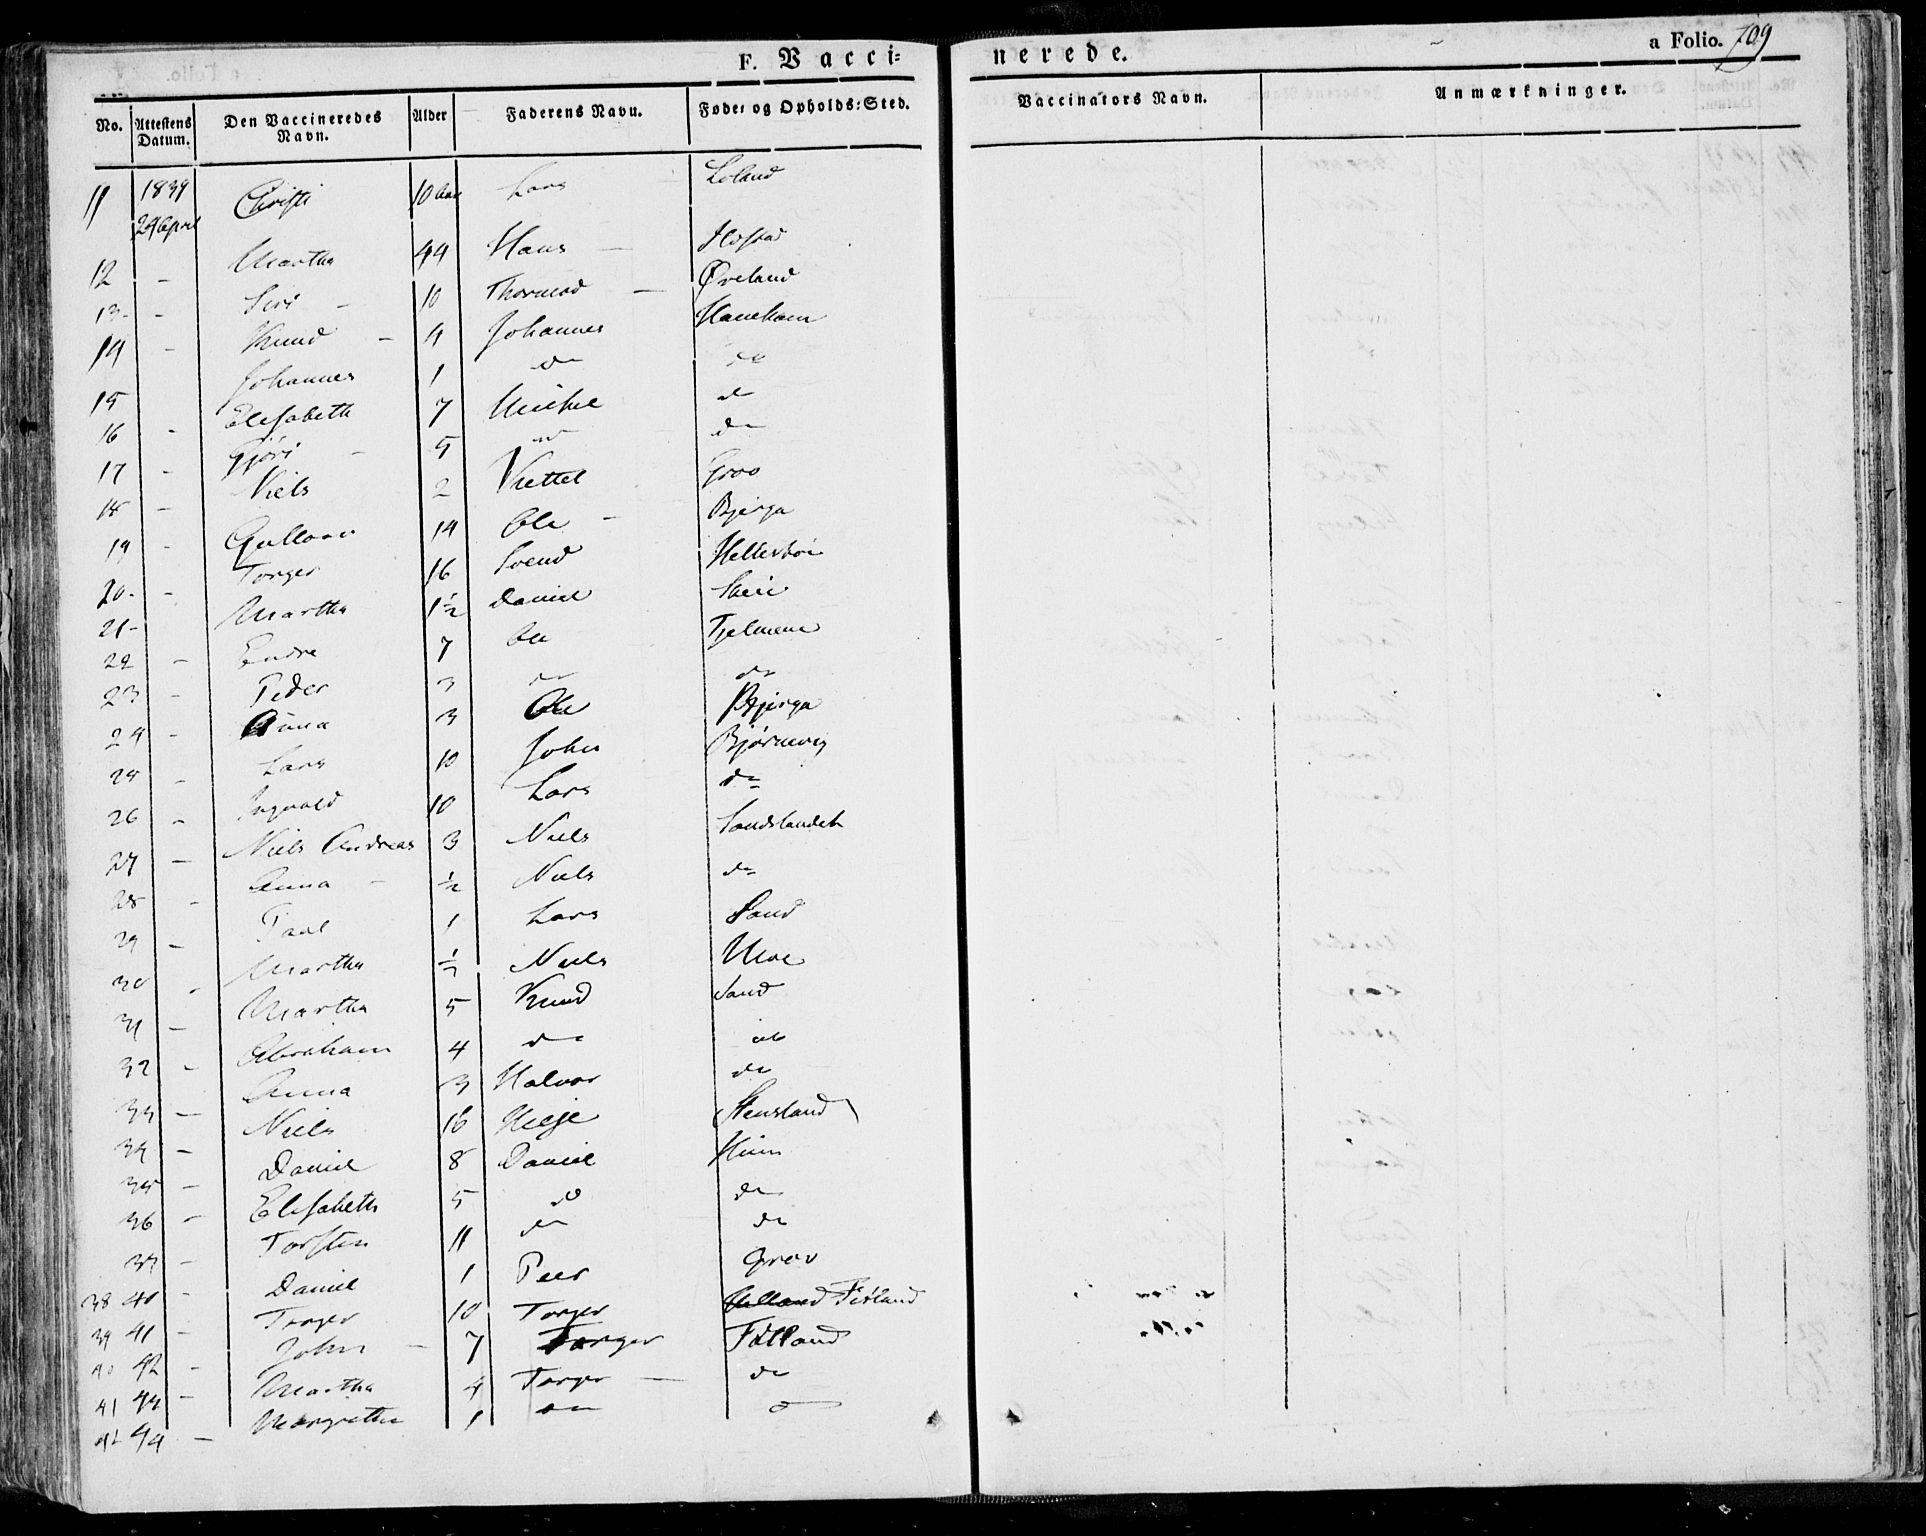 F. Vacci=
nerede.
a Folio. 709
No. Attestens Datum. Den Vaccineredes Navn. Alder Faderens Navn. Føde: og Opholds:Sted. Vaccinators Navn. Anmærkninger.
11 1839 24 April Christi 10 Aar Lars Loland
12 - Martha 44 Hans -
13 - Siri - 10 Thormod - Øveland
14 - Knud - 4 Johannes
15 Johannes 1 do do
16 - Elisabeth 7 Michel do
17 - Gjøri - 5 do do
18 - Niels 2 Kettel Grov
19 - 14 Ole - Bjerga
20 - Torger 16 Svend
21 - Martha 1½ Daniel
22 - Endre 7 Ole
23 - Peder 3 do do
24 - Anna 3 Ole Bjerga
25 - Lars 10 John Bjørnevig
26 - Ingvald 10 Lars do
27 - Niels Andreas 3 Niels Sandslandet
28 - Anna - ½ Niels do
29 - Paul 1 Lars Sand
30 - Martha ½ Niels Moe
31 - Martha 5 Knud Sand
32 - Abraham 4 do do
33 - Anna 3 Halvor do
34 - Niels 16 Helje Stensland
35 - Daniel 8 Daniel Hiim
36 - Elisabeth 5 do do
37 - Torsten 11 do do
38 40 - Daniel 1 Peer Grov
39 41 - Torger 10 Torger Fatland
40 42 - John - 7 Torger Fatland
41 43 - Martha 4 Torger - do
42 44 - Margrethe 1 do do